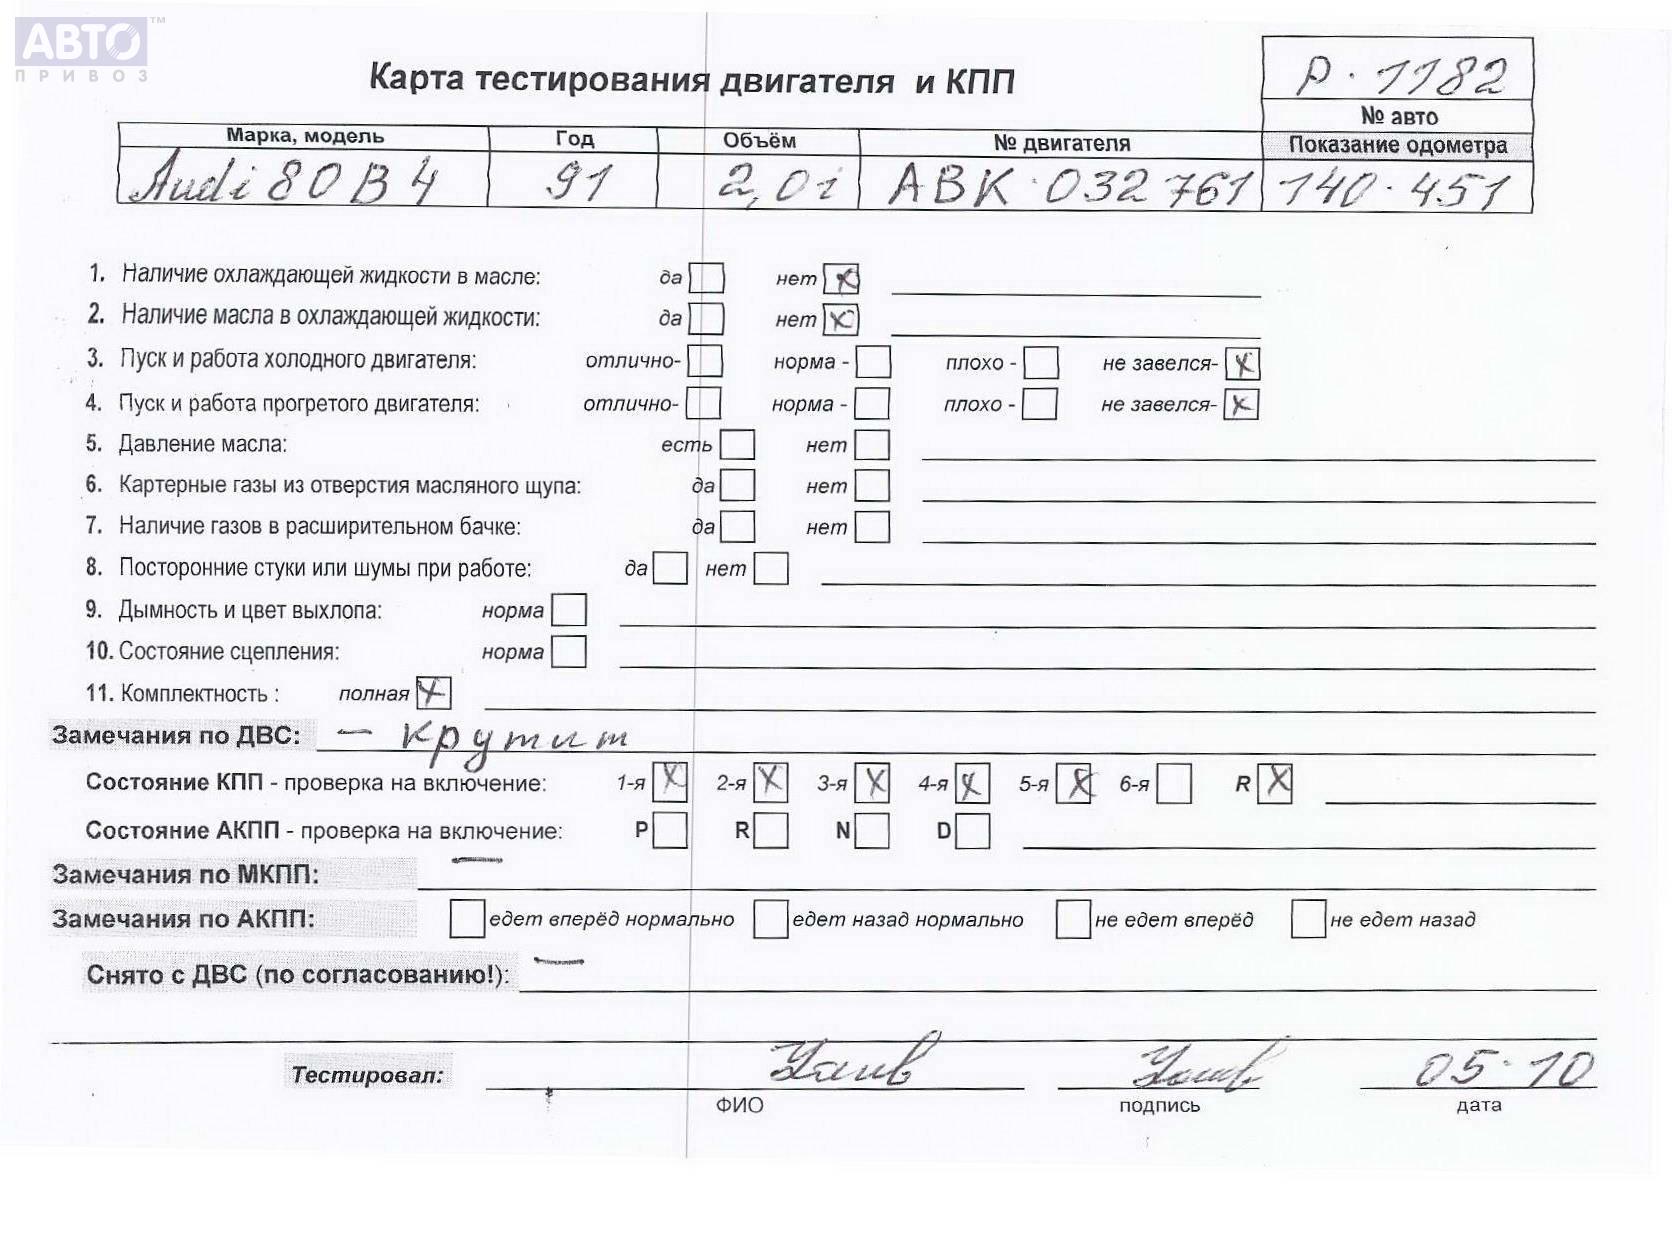 АВТО™
ПРИВОЗ
Карта тестирования двигателя и КПП
Р·1182
№ авто
Марка, модель Год Объём № двигателя Показание одометра
Audi 80 B4 91 2,0i ABK·032761 140·451
1. Наличие охлаждающей жидкости в масле: да нет x
2. Наличие масла в охлаждающей жидкости: да нет x
3. Пуск и работа холодного двигателя: отлично- норма - плохо - не завелся- x
4. Пуск и работа прогретого двигателя: отлично- норма - плохо - не завелся- x
5. Давление масла: есть нет
6. Картерные газы из отверстия масляного щупа: да нет
7. Наличие газов в расширительном бачке: да нет
8. Посторонние стуки или шумы при работе: да нет
9. Дымность и цвет выхлопа: норма
10. Состояние сцепления: норма
11. Комплектность : полная x
Замечания по ДВС: — крутит
Состояние КПП - проверка на включение: 1-я x 2-я x 3-я x 4-я x 5-я x 6-я R x
Состояние АКПП - проверка на включение: P R N D
Замечания по МКПП: —
Замечания по АКПП: едет вперёд нормально едет назад нормально не едет вперёд не едет назад
Снято с ДВС (по согласованию!): —
Тестировал: 05·10
ФИО подпись дата